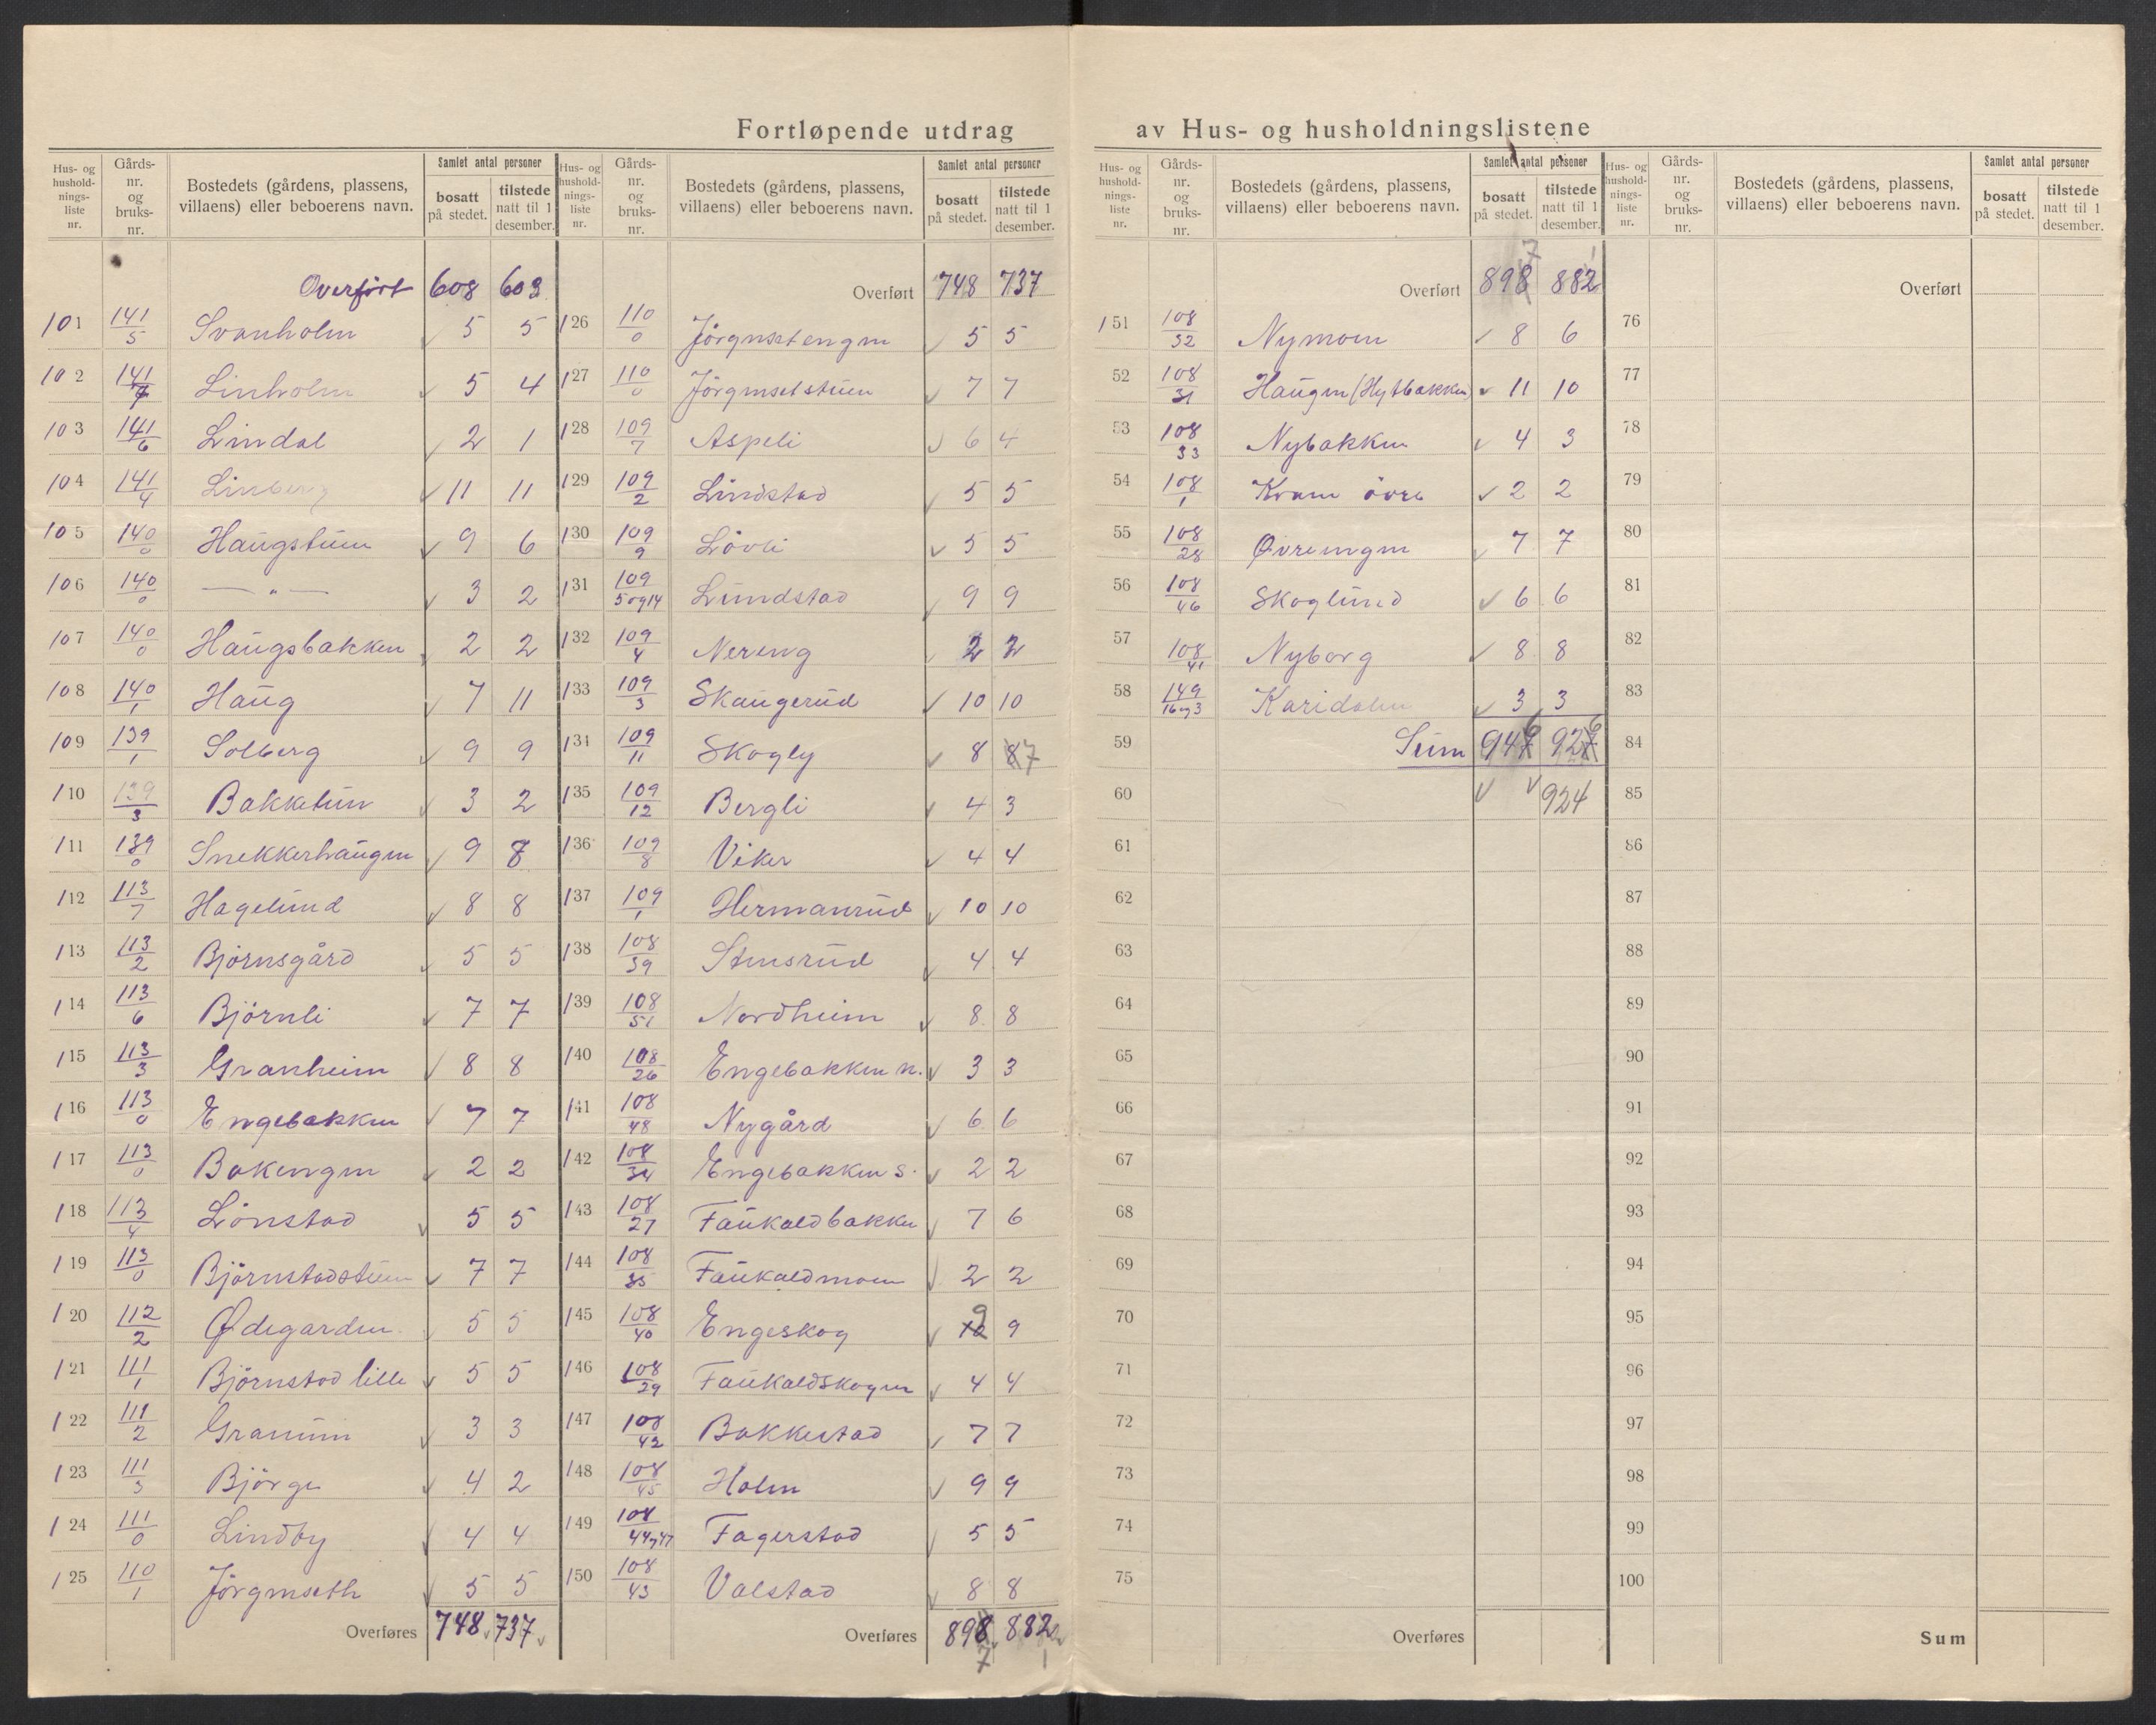 Fortløpende utdrag av Hus- og husholdningslistene
Hus- og husholdnings-liste nr. | Gårds-nr. og bruks-nr. | Bostedets (gårdens, plassens, villaens) eller beboerens navn. | Samlet antal personer | bosatt på stedet. | tilstede natt til 1 desember.
Overført 608 603
101 141/5 Svanholm 5 5
102 141/7 Linholm 5 4
103 141/6 Lindal 2 1
104 141/4 Linberg 11 11
105 140/0 Haugstuen 9 6
106 140/0 — " — 3 2
107 140/0 Haugsbakken 2 2
108 140/1 Haug 7 11
109 139/1 Solberg 9 9
110 139/3 Bakketun 3 2
111 139/0 Snekkerhaugen 9 8
112 113/7 Hagelund 8 8
113 113/2 Björnsgård 5 5
114 113/6 Björnli 7 7
115 113/3 Granheim 8 8
116 113/0 Engebakken 7 7
117 113/0 Bakengen 2 2
118 113/4 Lönstad 5 5
119 113/0 Björnstadstuen 7 7
120 112/2 Ødegarden 5 5
121 111/1 Björnstad lille 5 5
122 111/2 Granum 3 3
123 111/3 Björge 4 2
124 111/0 Lindby 4 4
125 110/1 Jörgenseth 5 5
Overføres 748 737
Hus- og husholdnings-liste nr. | Gårds-nr. og bruks-nr. | Bostedets (gårdens, plassens, villaens) eller beboerens navn. | Samlet antal personer | bosatt på stedet. | tilstede natt til 1 desember.
Overført 748 737
126 110/0 Jörgensetengen 5 5
127 110/0 Jörgensetstuen 7 7
128 109/7 Aspeli 6 4
129 109/2 Lindstad 5 5
130 109/9 Lövli 5 5
131 109/5 og 14 Lundstad 9 9
132 109/4 Nereng 2 2
133 109/3 Skaugerud 10 10
134 109/11 Skogly 8 8 7
135 109/12 Bergli 4 3
136 109/8 Viker 4 4
137 109/1 Hermanrud 10 10
138 108/39 Stensrud 4 4
139 108/51 Nordheim 8 8
140 108/26 Engebakken n. 3 3
141 108/48 Nygård 6 6
142 108/34 Engebakken s. 2 2
143 108/27 Faukaldbakken 7 6
144 108/35 Faukaldmoen 2 2
145 108/40 Engeskog 10 9 9
146 108/29 Faukaldskogen 4 4
147 108/42 Bakkestad 7 7
148 108/45 Holm 9 9
149 108/44 og 47 Fagerstad 5 5
150 108/43 Valstad 8 8
Overføres 898 882
7 1
Hus- og husholdnings-liste nr. | Gårds-nr. og bruks-nr. | Bostedets (gårdens, plassens, villaens) eller beboerens navn. | Samlet antal personer | bosatt på stedet. | tilstede natt til 1 desember.
7 1
Overført 898 882
151 108/32 Nymoen 8 6
52 108/31 Haugen (Hytbakken) 11 10
53 108/33 Nybakken 4 3
54 108/1 Kvam övre 2 2
55 108/28 Øvreengen 7 7
56 108/46 Skoglund 6 6
57 108/41 Nyborg 8 8
58 149/16 og 3 Karidalen 3 3
59 Sum 947 6 927 6
60 924
61
62
63
64
65
66
67
68
69
70
71
72
73
74
75
Overføres
Hus- og husholdnings-liste nr. | Gårds-nr. og bruks-nr. | Bostedets (gårdens, plassens, villaens) eller beboerens navn. | Samlet antal personer | bosatt på stedet. | tilstede natt til 1 desember.
Overført
76
77
78
79
80
81
82
83
84
85
86
87
88
89
90
91
92
93
94
95
96
97
98
99
100
Sum